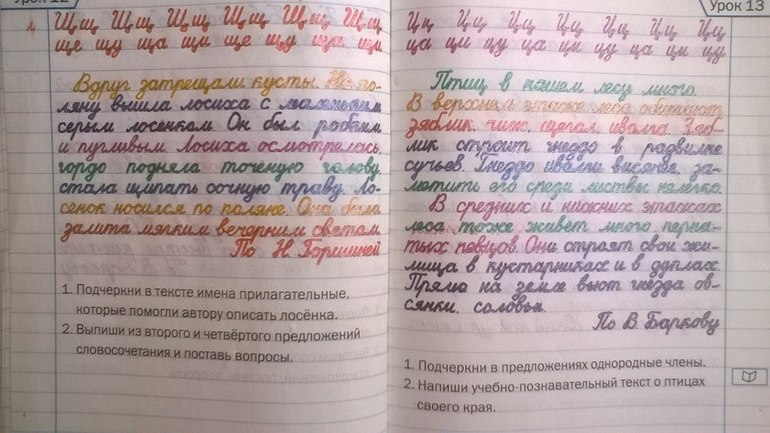 Урок 12
Щщ Щщ Щщ Щщ Щщ Щщ
ще щу ща щи ще щу ща щи
Вдруг затрещали кусты. На по-
ляну вышла лосиха с маленьким
серым лосёнком. Он был робким
и пугливым. Лосиха осмотрелась,
гордо подняла точёную голову,
стала щипать сочную траву. Ло-
сёнок носился по поляне. Она была
залита мягким вечерним светом.
По Н.
1. Подчеркни в тексте имена прилагательные,
которые помогли автору описать лосёнка.
2. Выпиши из второго и четвёртого предложений
словосочетания и поставь вопросы.
Урок 13
Цц Цц Цц Цц Цц Цц Цц
ца ци цу ца ци цу ца ци цу
Птиц в нашем лесу много.
В верхнем этаже леса обитают
зяблик, чиж, щегол, иволга. Зяб-
лик строит гнездо в развилке
сучьев. Гнездо иволги висячее, за-
метить его среди листвы нелегко.
В средних и нижних этажах
леса тоже живёт много перна-
тых певцов. Они строят свои жи-
лища в кустарниках и в дуплах.
Прямо на земле вьют гнёзда ов-
сянки, соловьи.
По В. Баркову
1. Подчеркни в предложениях однородные члены.
2. Напиши учебно-познавательный текст о птицах
своего края.